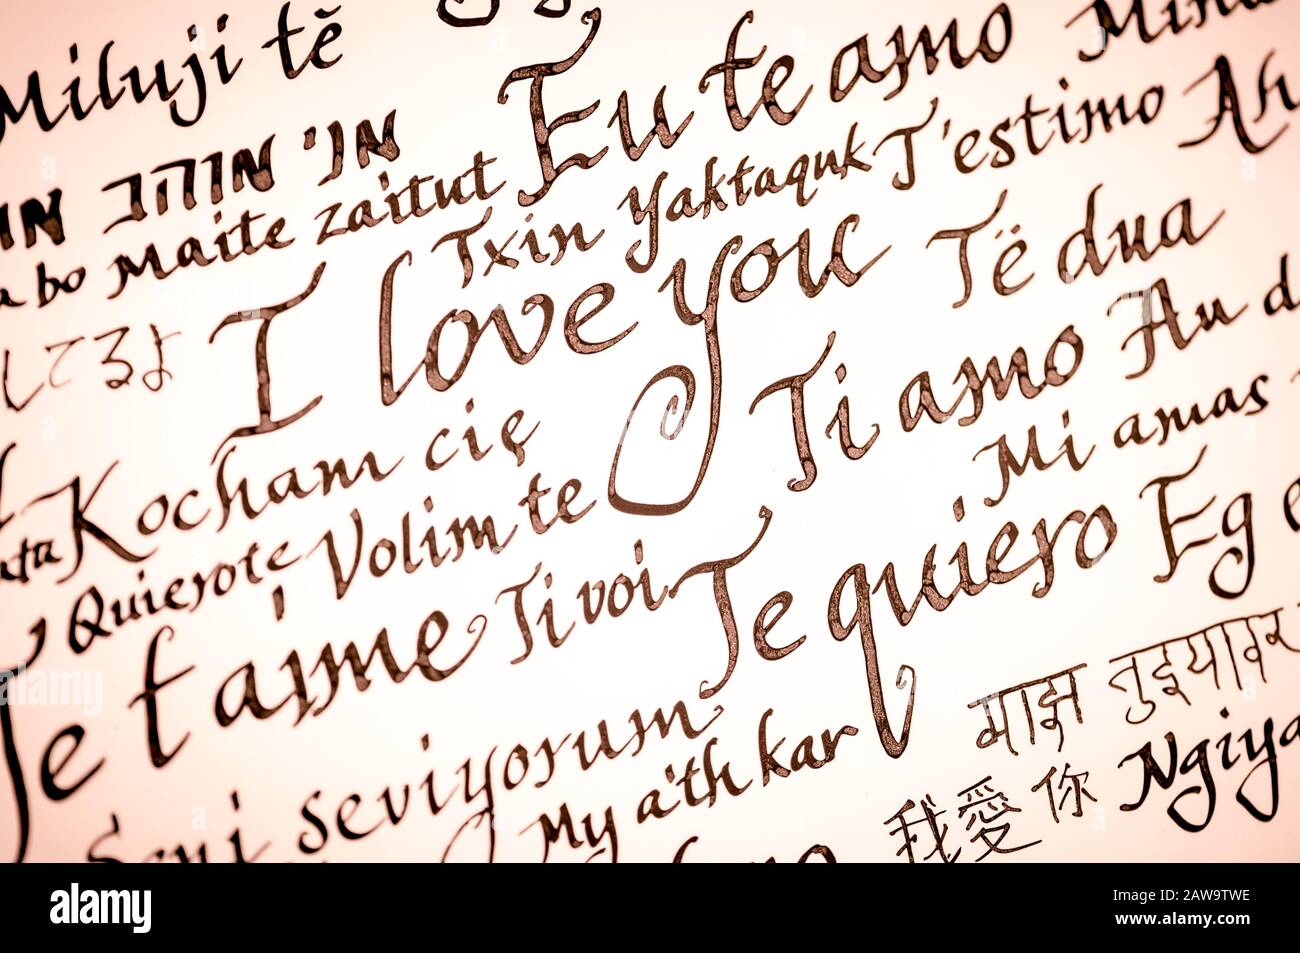 Miluji tĕ
Eu te amo
אני אוהב
Maite zaitut
Txin Yaktaquk
T'estimo
bo
I love you
Të dua
してるよ
Kocham cię
Ti amo
Au
Quierote
Volim te
Mi amas
Je t'aime
Ti voi
Te quiero
Eg
Seni seviyorum
माझ तुझ्यावर
My a'th kar
我愛你
alamy
Image ID: 2AW9TWE
www.alamy.com